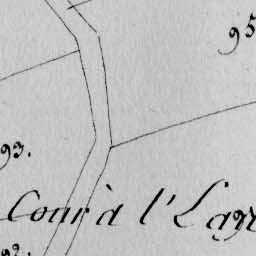 95
93.
Cour à l'
92.